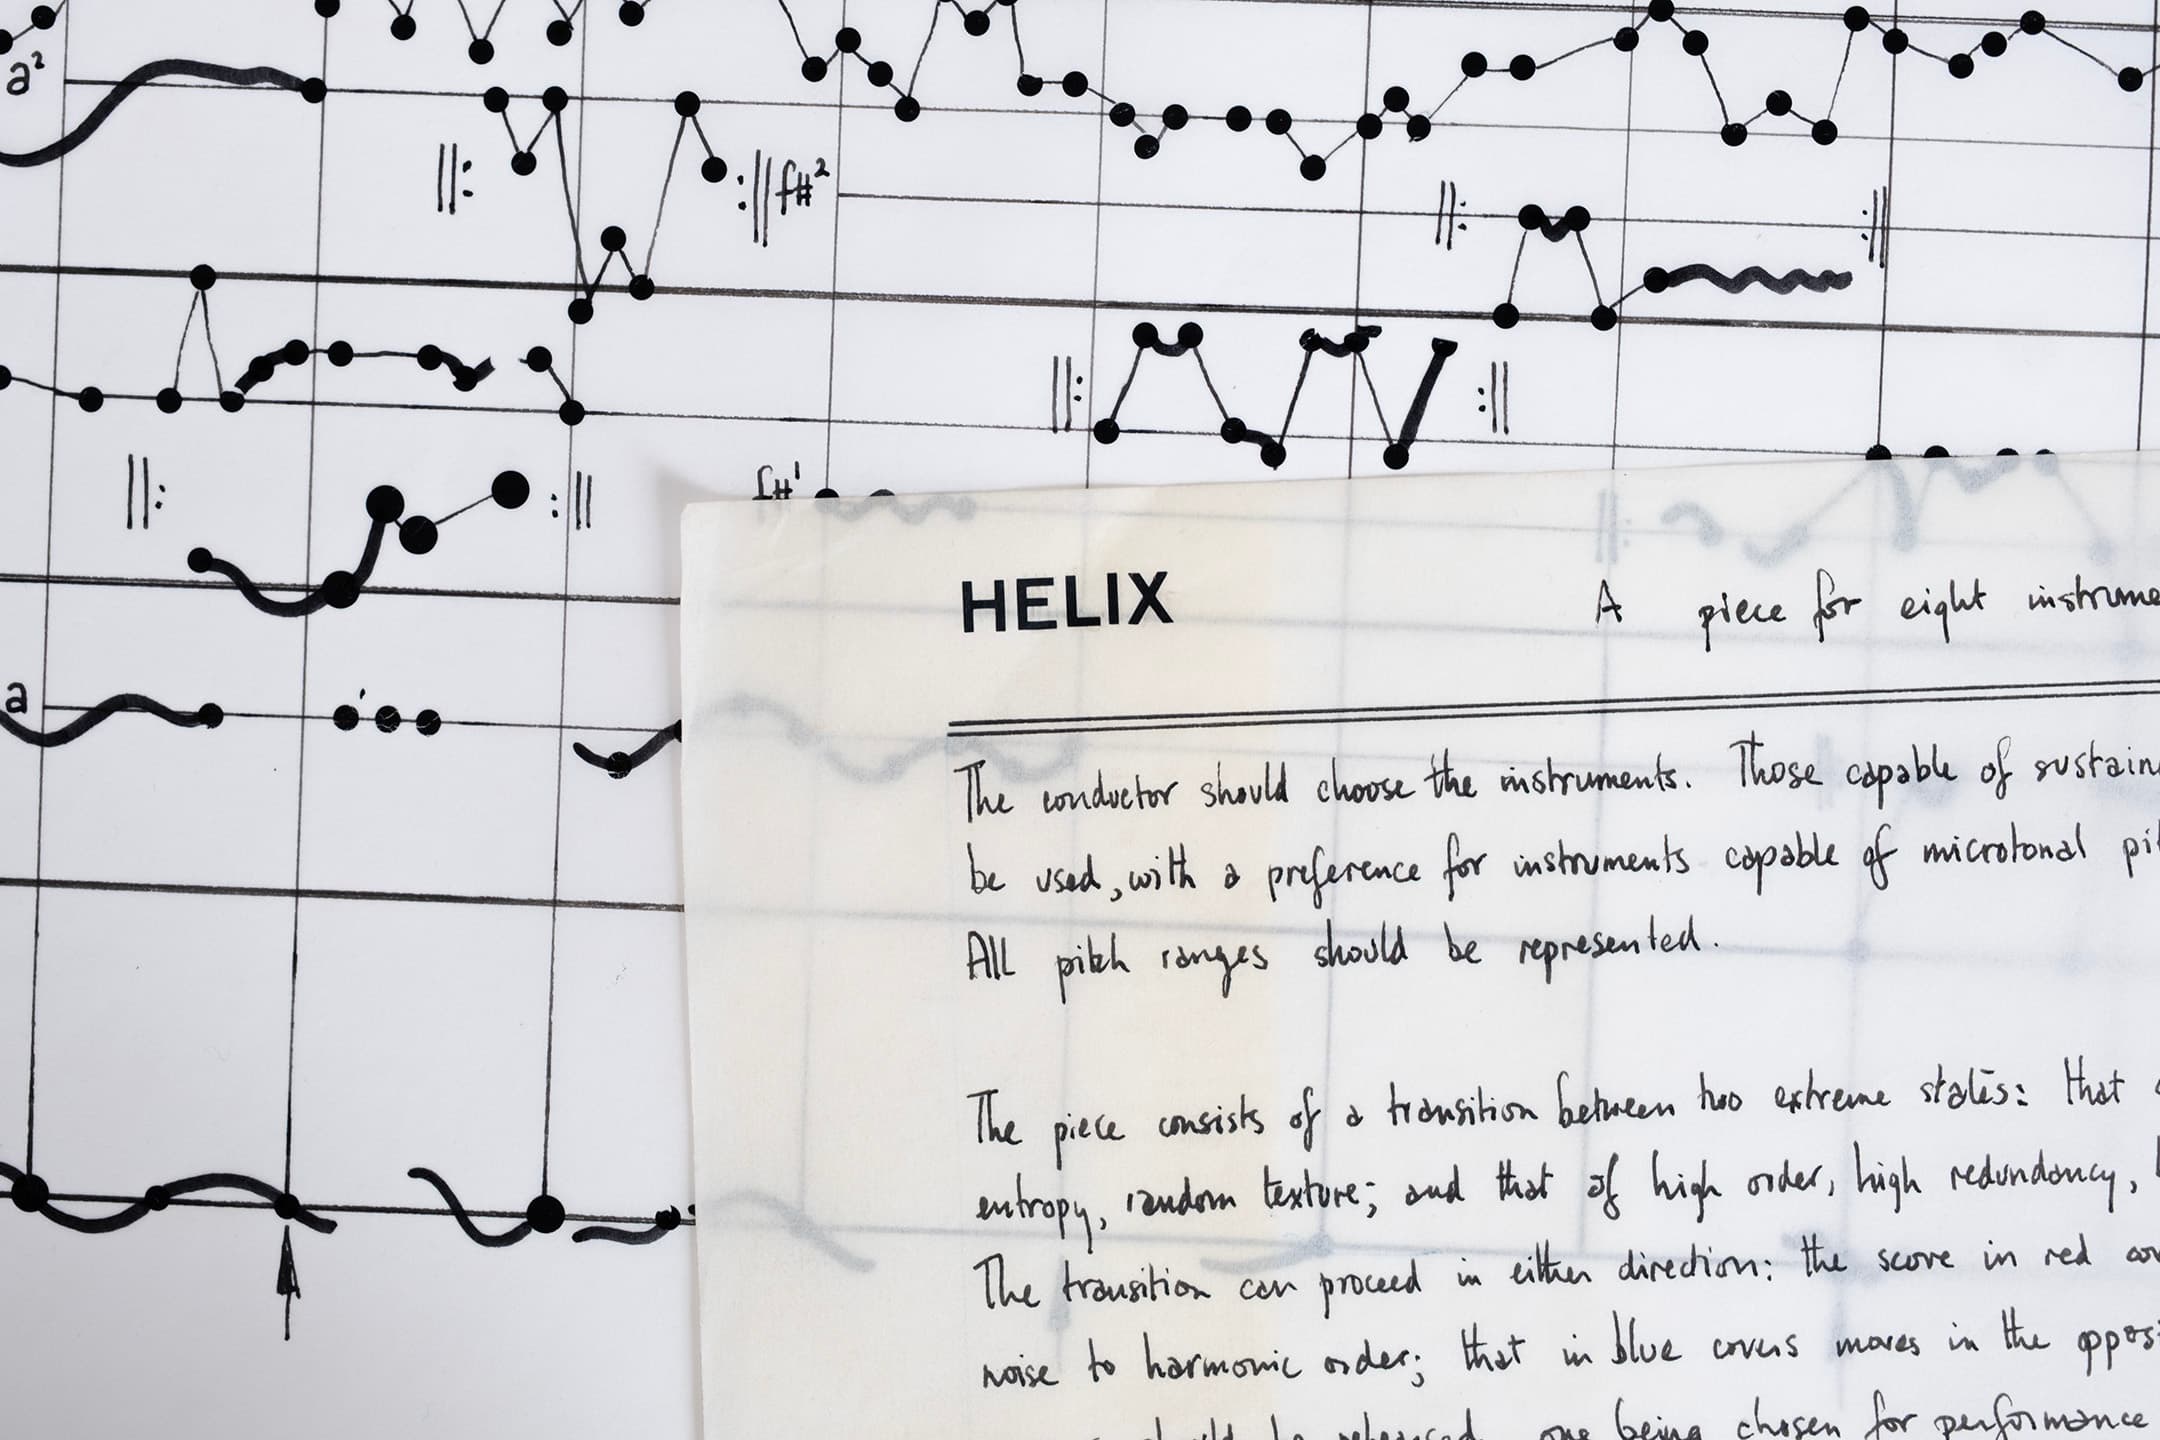 a²
f#²
f#¹
a
HELIX
A piece for eight
The conductor should choose the instruments. Those capable of
be used, with a preference for instruments capable of microtonal
All pitch ranges should be represented.
The piece consists of a transition between two extreme states: that
entropy, random texture; and that of high order, high redundancy,
The transition can proceed in either direction: the score in red
noise to harmonic order; that in blue covers moves in the
being chosen for performance